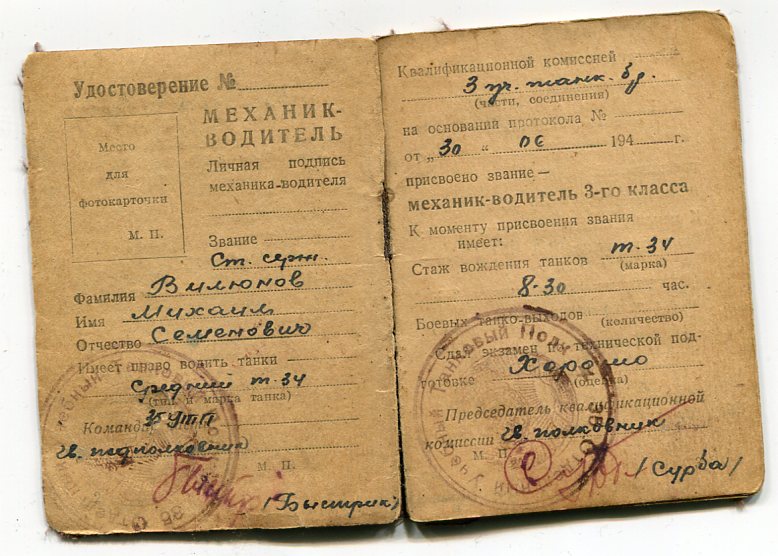 Удостоверение №
МЕХАНИК-
ВОДИТЕЛЬ
Место
для
фотокарточки
М. П.
Личная подпись
механика-водителя
Звание
Ст. серж.
Фамилия Вилюнов
Имя Михаил
Отчество Семенович
Имеет право водить танки
Средний т-34
(тип и марка танка)
Командир 35 УТП
гв. подполковник
М. П.
(Быстрик)
2
Квалификационной комиссией
3 уч. танк. бр.
(части, соединения)
на основании протокола №
от „30 “ 194 г.
присвоено звание —
механик-водитель 3-го класса
К моменту присвоения звания
имеет:
Стаж вождения танков т-34
(марка)
8-30 час.
Боевых танко-выходов
(количество)
Сдал экзамен по технической под-
готовке Хорошо
(оценка)
Председатель квалификационной
комиссии гв. полковник
М. П.
/Сурба/